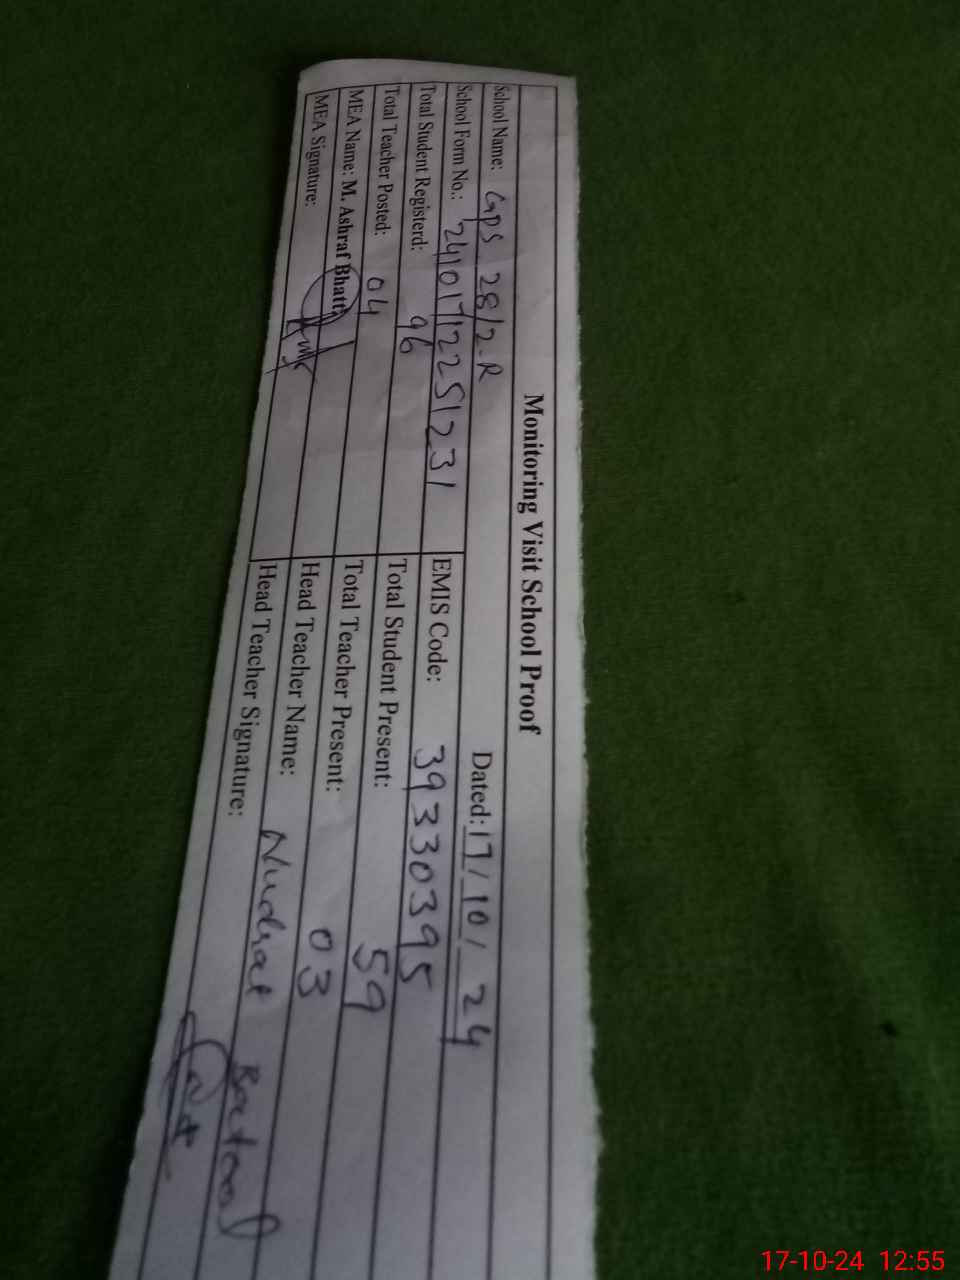 Monitoring Visit School Proof
School Name: GPS 28/2-R Dated: 17/10/24
School Form No.: 2410171225123/ EMIS Code: 39330395
Total Student Registerd: 96 Total Student Present: 59
Total Teacher Posted: 04 Total Teacher Present: 03
MEA Name: M. Ashraf Bhatti Head Teacher Name: Nudrat Batool
MEA Signature: Head Teacher Signature:
17-10-24 12:55